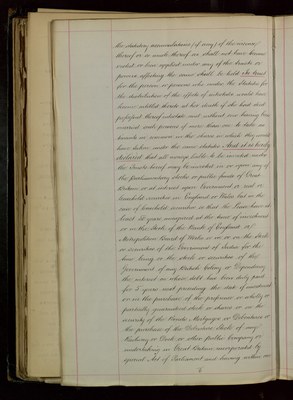 the statutory accumulations (if any) of the income
thereof or so much thereof as shall not have become
vested or been applied under any of the trusts or
powers affecting the same shall be held In trust
for the person or persons who under the Statutes for
the distribution of the effects of intestates would have
become entitled thereto at her death if she had died
possessed thereof intestate and without ever having been
married such persons if more than one to take as
tenants in common in the shares in which they would
have taken under the same statutes And it is hereby
declared that all moneys liable to be invested under
the Trusts hereof may be invested in or upon any of
the Parliamentary stocks or public funds of Great
Britain or at interest upon Government or real or
leasehold securities in England or Wales but in the
case of leasehold securities so that the Term have at
least 60 years unexpired at the time of investment
or in the Stock of the Bank of England or
Metropolitan Board of Works or in or on the stock
or securities of the Government of India for the
time being or the stock or securities of the
Government of any British Colony or Dependency
the interest on whose debt has been duly paid
for 5 years next preceding the date of investment
or in the purchase of the preference or wholly or
partially guaranteed stock or shares or on the
security of the Bonds Mortgages or Debentures or
the purchase of the Debenture Stock of any
Railway or Dock or other public Company or
undertaking in Great Britain incorporated by
special Act of Parliament and having within